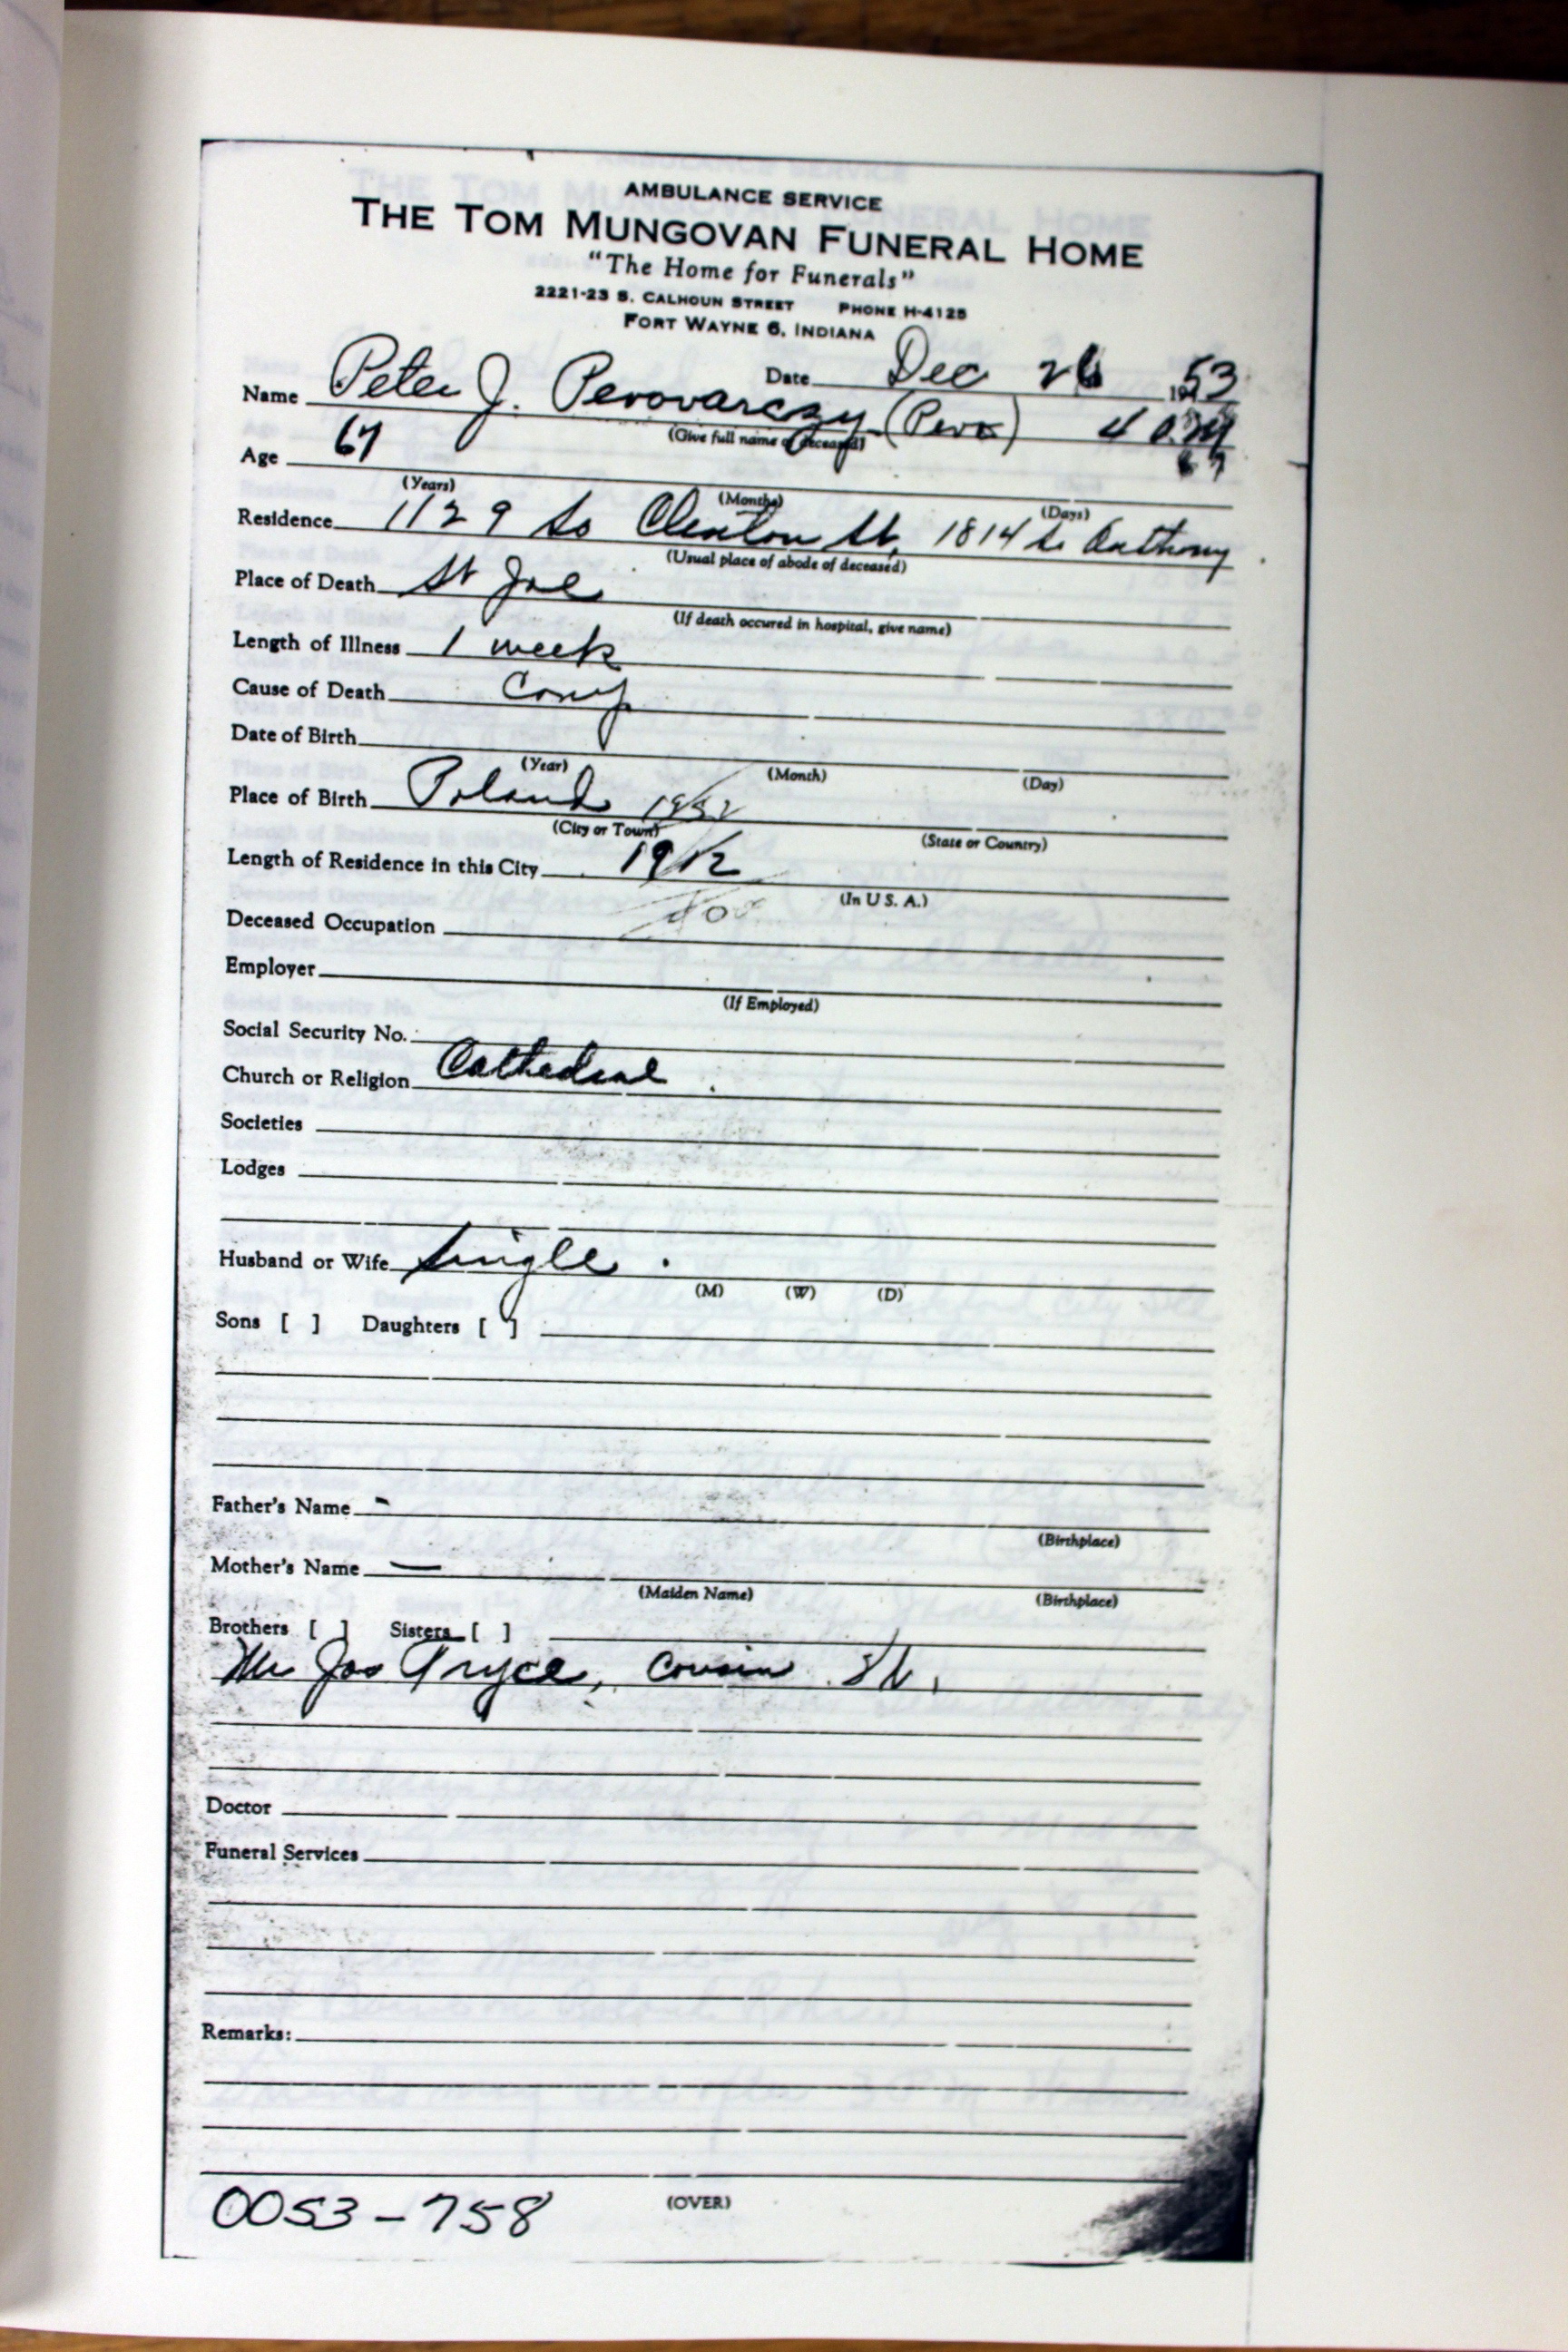 AMBULANCE SERVICE
THE TOM MUNGOVAN FUNERAL HOME
"The Home for Funerals"
2221-23 S. CALHOUN STREET PHONE H-4125
FORT WAYNE 6, INDIANA
Date Dec 26 1953
Name Peter J. Perovarczy (Pero)
(Give full name of deceased)
Age 67
(Years) (Months) (Days)
Residence 1129 So Clinton St, 1814 So Anthony
(Usual place of abode of deceased)
Place of Death St Joe
(If death occured in hospital, give name)
Length of Illness 1 week
Cause of Death
Date of Birth
(Year) (Month) (Day)
Place of Birth Poland
(City or Town) (State or Country)
Length of Residence in this City 1912
(In U S. A.)
Deceased Occupation
Employer
(If Employed)
Social Security No.
Church or Religion Cathedral
Societies
Lodges
Husband or Wife Single .
(M) (W) (D)
Sons [ ] Daughters [ ]
Father's Name -
(Birthplace)
Mother's Name —
(Maiden Name) (Birthplace)
Brothers [ ] Sisters [ ]
Jos Pryce, Cousin
Doctor
Funeral Services
Remarks:
(OVER)
0053-758